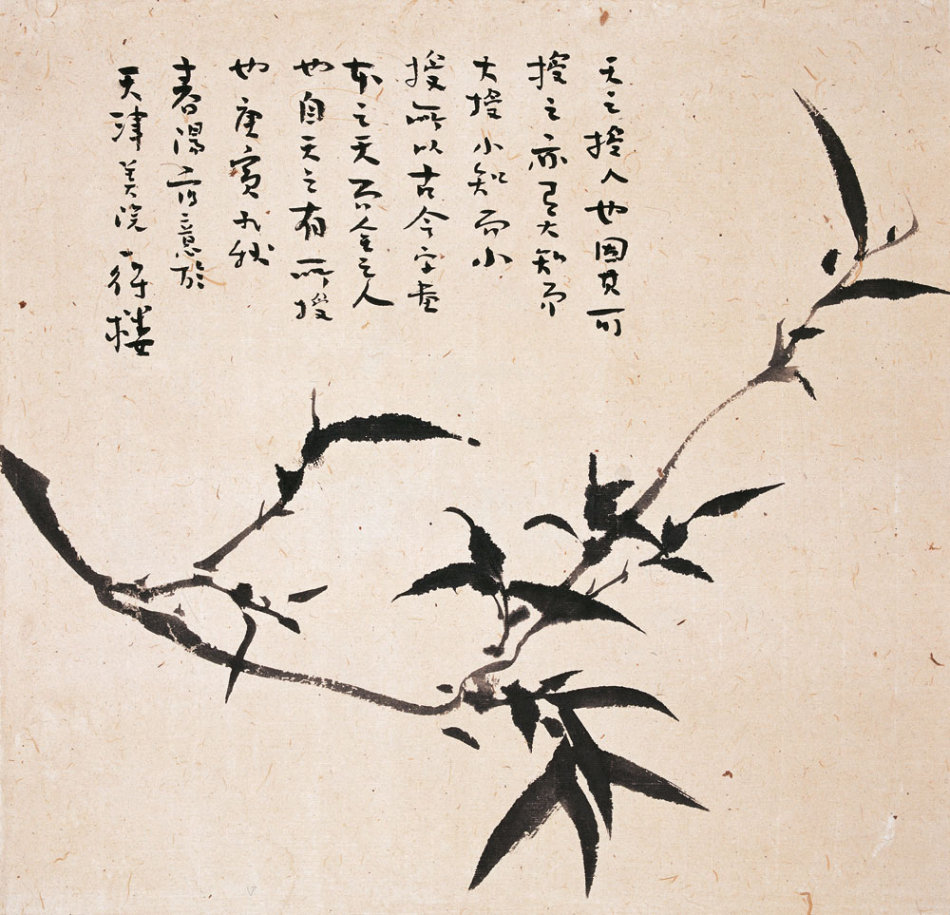 天之授人也因其可
授之亦有大知而
大授小知而小
授所以古今字画
本之天而全之人
也自天之有所授
也庚寅九秋
春阳写意於
天津美院一得楼